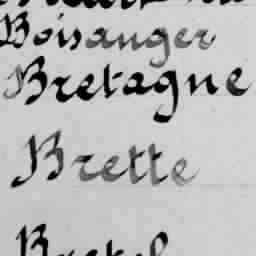 Boisanger
Bretagne
Brette